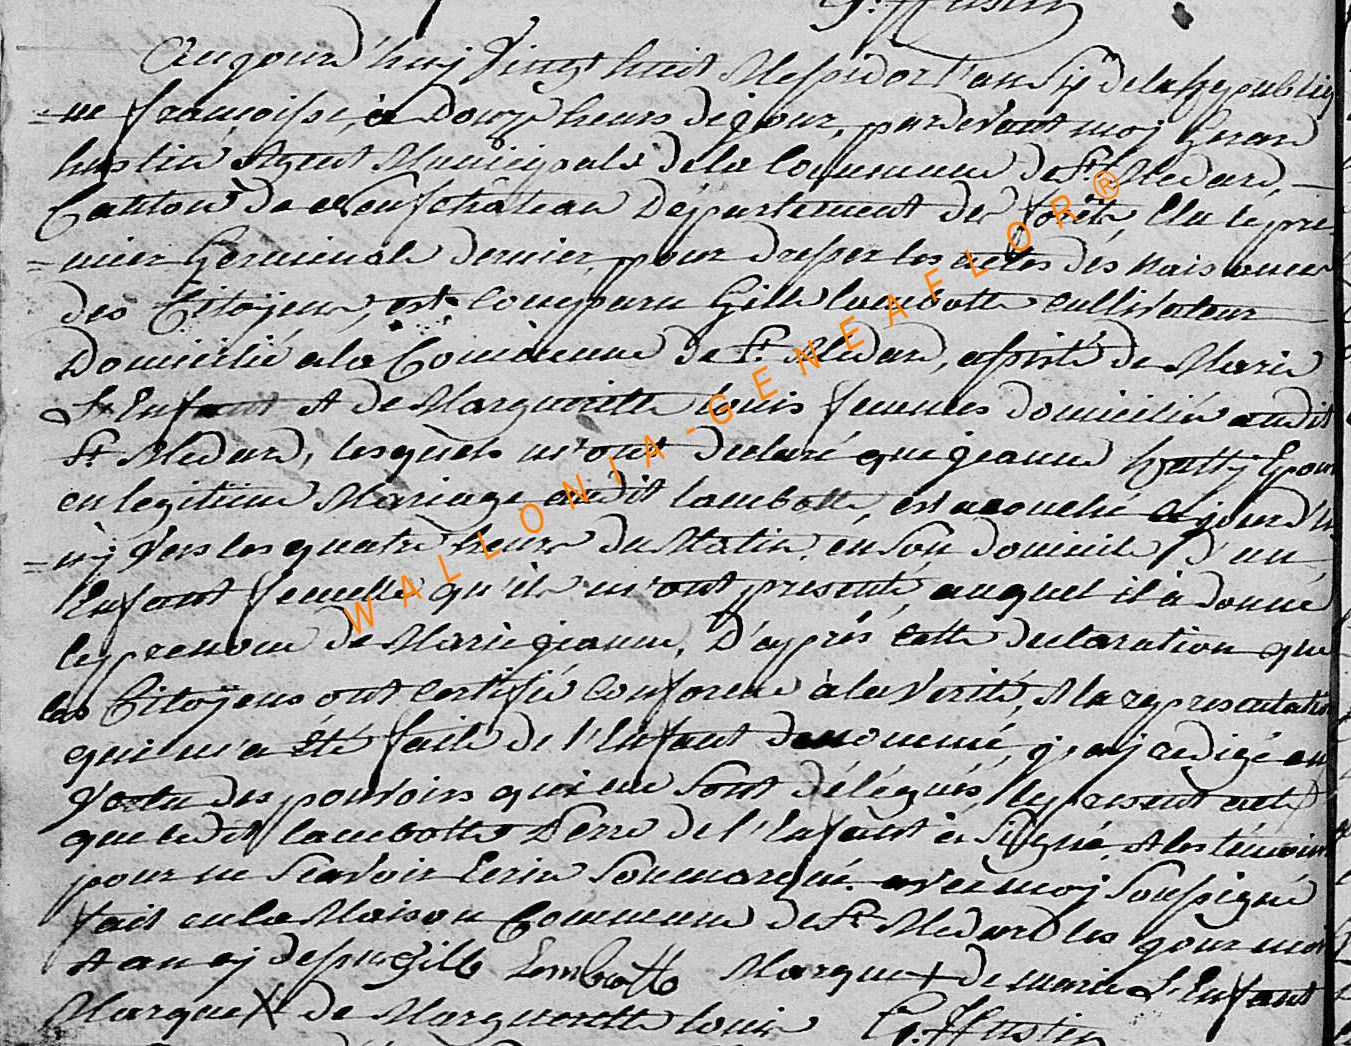 G. ffustin
Aujourd'huij Vingt huit Messidor l'an Sij de la Republiq
= ue francoisse, a Douze heurs de jour, pardevant moij Gerar
hustin Agent Municipale de la Commune de St Medard,
Canton de Neufchâteau Département des forêts, Elu le pre
= mier Germinale dernier, pour dresser les actes dés naisance
des Citoÿens, est Comparu Gille lambotte cultivateur
Domicilié a la Commune de St Medard, assisté de Marie
L'Enfant et de Margueritte louis femmes domicilié audit
St Medard, lesquels m'ont declaré que jeanne Epous
en legitime Mariage audit lambotte, est acouché aujourd'h
= uij Vers les quatre heure du Matin, en son domicile D'un
Enfant femelle qu'ils m'ont presenté auquel il à donné
le prenom de Marie jeanne, D'après cette declaration que
les Citoÿens ont certifié conforme à la Verité, & la representatio
qui m'a été faite de l'Enfant denommé, j'aij redigé en
Vertu des pouvoirs qui me sont délégués, le present acte
que ledit lambotte Perre de l'Enfant à Signé, et les témoins
pour ne Scavoir Ecrire Sommarqué avec moij Soussigné
fait en la Maison Commune de St Medard les jour mois
et an cij dessus Gille Lembotte Marque + de marie L'Enfant
Marque X de Margueritte louis G. ffustin
WALLONIA-GENEAFLOR®